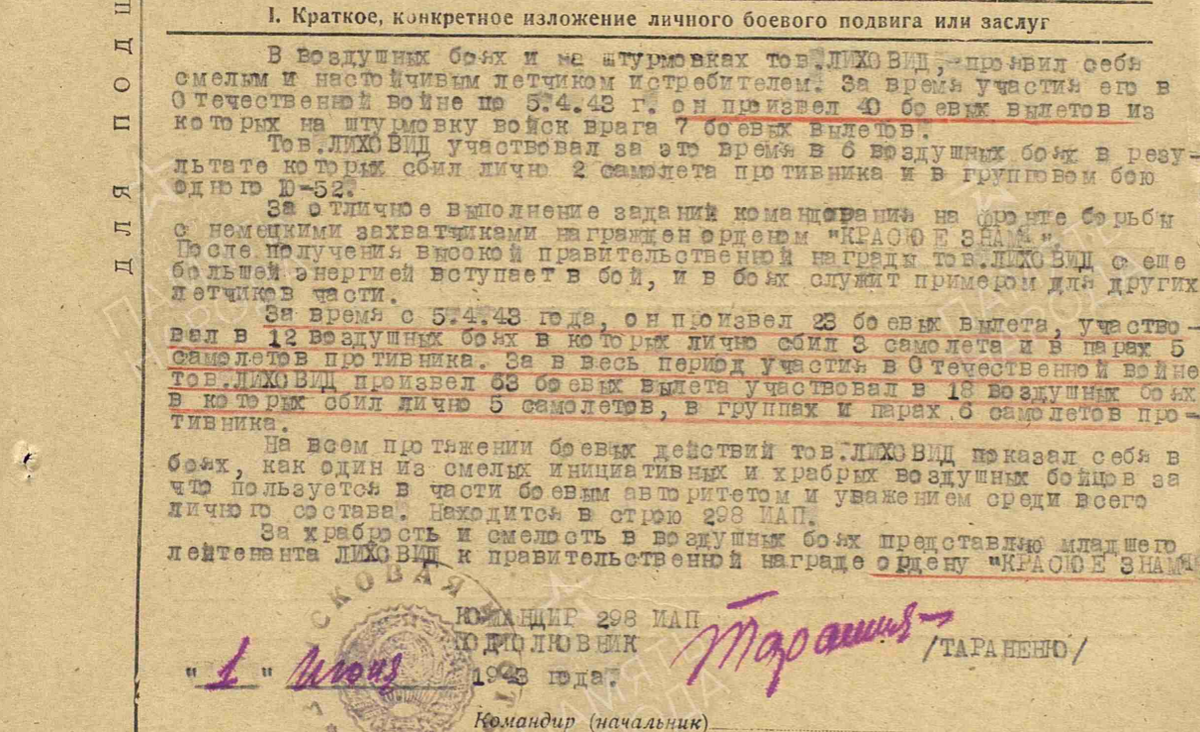 ДЛЯ ПОДШ
I. Краткое, конкретное изложение личного боевого подвига или заслуг
В воздушных боях и на штурмовках тов.ЛИХОВИД, проявил себя
смелым и настойчивым летчиком истребителем. За время участия его в
Отечественной войне по 5.4.43 г. он произвел 40 боевых вылетов из
которых на штурмовку войск врага 7 боевых вылетов.
Тов.ЛИХОВИД участвовал за это время в 6 воздушных боях в резу-
льтате которых сбил лично 2 самолета противника и в групповом бою
одного Ю-52.
За отличное выполнение заданий командования на фронте борьбы
с немецкими захватчиками награжден орденом "КРАСЮЕ ЗНАМЯ".
После получения высокой правительственной награды тов.ЛИХОВИД с еще
большей энергией вступает в бой, и в боях служит примером для других
летчиков части.
За время с 5.4.43 года, он произвел 23 боевых вылета, участво-
вал в 12 воздушных боях в которых лично сбил 3 самолета и в парах 5
самолетов противника. За в весь период участия в Отечественной войне
тов.ЛИХОВИД произвел 63 боевых вылета участвовал в 18 воздушных боях
в которых сбил лично 5 самолетов, в группах и парах 6 самолетов про-
тивника.
На всем протяжении боевых действий тов.ЛИХОВИД показал себя в
боях, как один из смелых инициативных и храбрых воздушных бойцов за
что пользуется в части боевым авторитетом и уважением среди всего
личного состава. Находится в строю 298 ИАП.
За храбрость и смелость в воздушных боях представляю младшего
лейтенанта ЛИХОВИД к правительственной награде ордену "КРАСЮЕ ЗНАМЯ"
КОМАНДИР 298 ИАП
ПОДПОЛКОВНИК Тараненко /ТАРАНЕНЮ/
"1" Июня 1943 года.
Командир (начальник)
ПАМЯТЬ НАРОДА